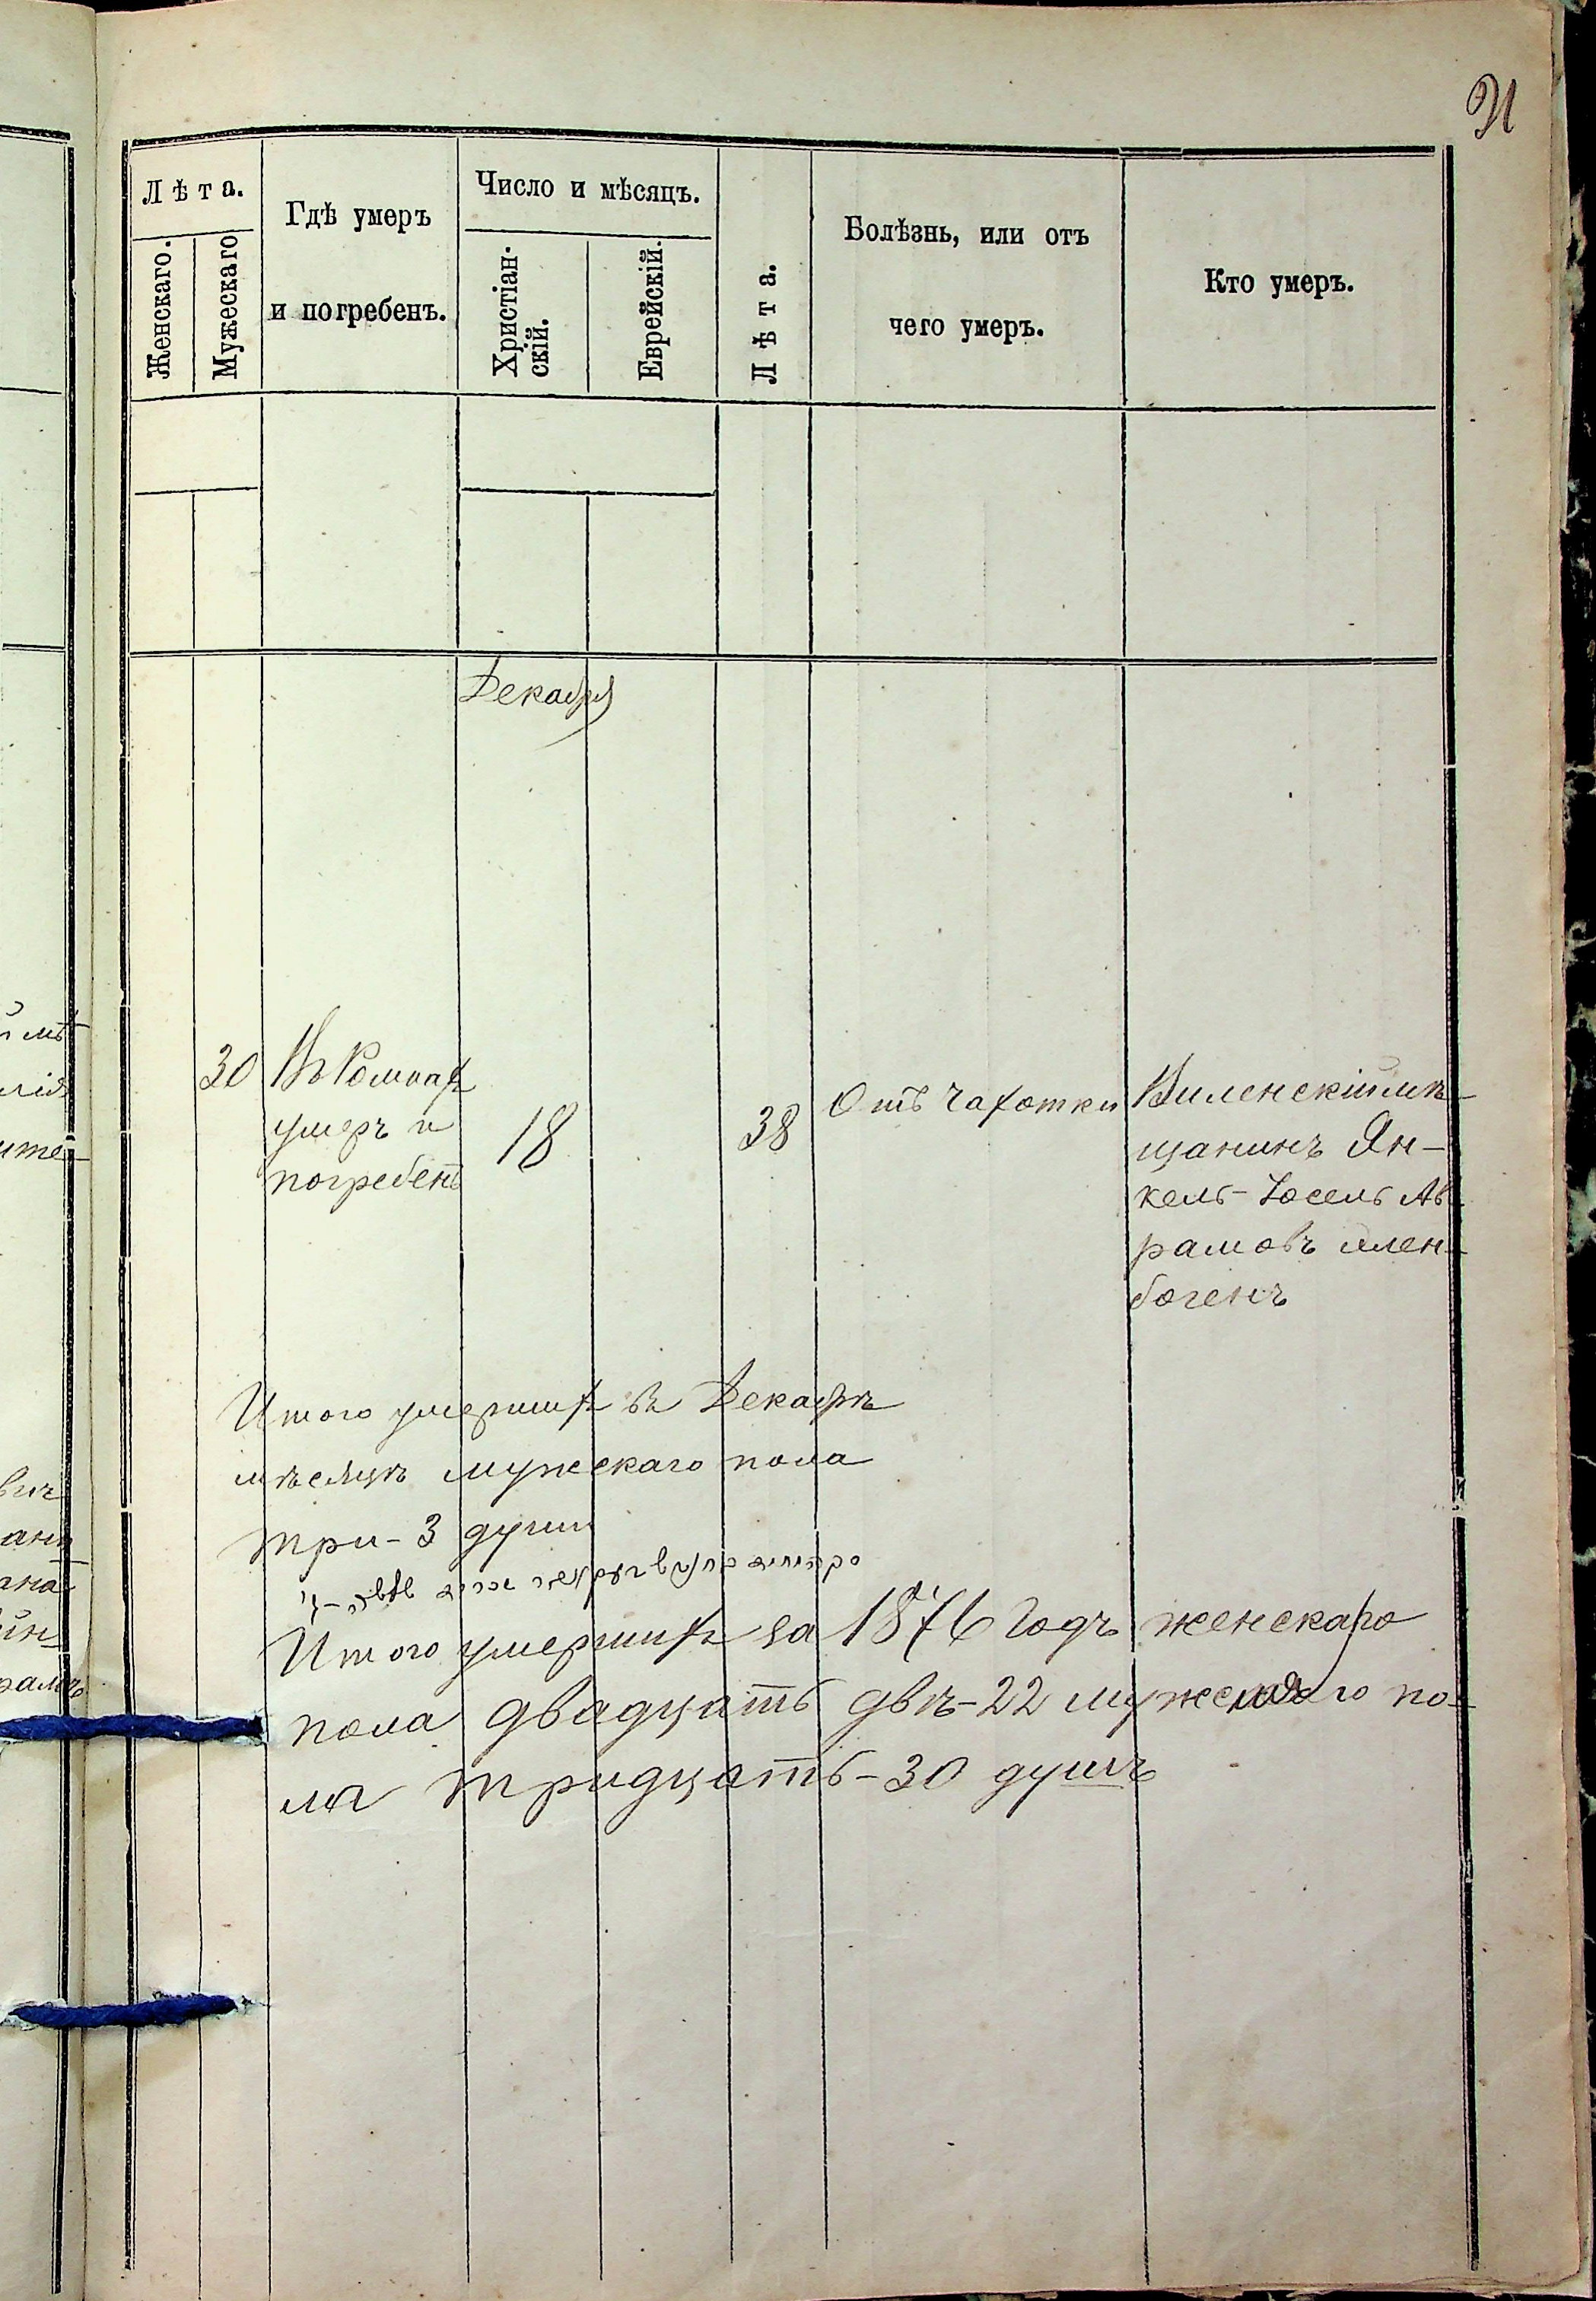 Лѣта.
Женскаго.
Мужескаго
Гдѣ умеръ
и погребенъ.
Число и мѣсяцъ.
Христіан-
скій.
Еврейскій.
Лѣта.
Болѣзнь, или отъ
чего умеръ.
Кто умеръ.
Декабря
30
Въ Ромнахъ
умеръ и
погребенъ
18
38
Отъ чахотки
Виленскій мѣ-
щанинъ Ян-
кель-Іосель Аб-
рамовъ
богенъ
Итого умершихъ въ Декабрѣ
мѣсяцѣ мужескаго пола
три-3 души
Итого умершихъ за 1876 годъ женскаго
пола двадцать двѣ-22 мужескаго по-
ла тридцать-30 душъ